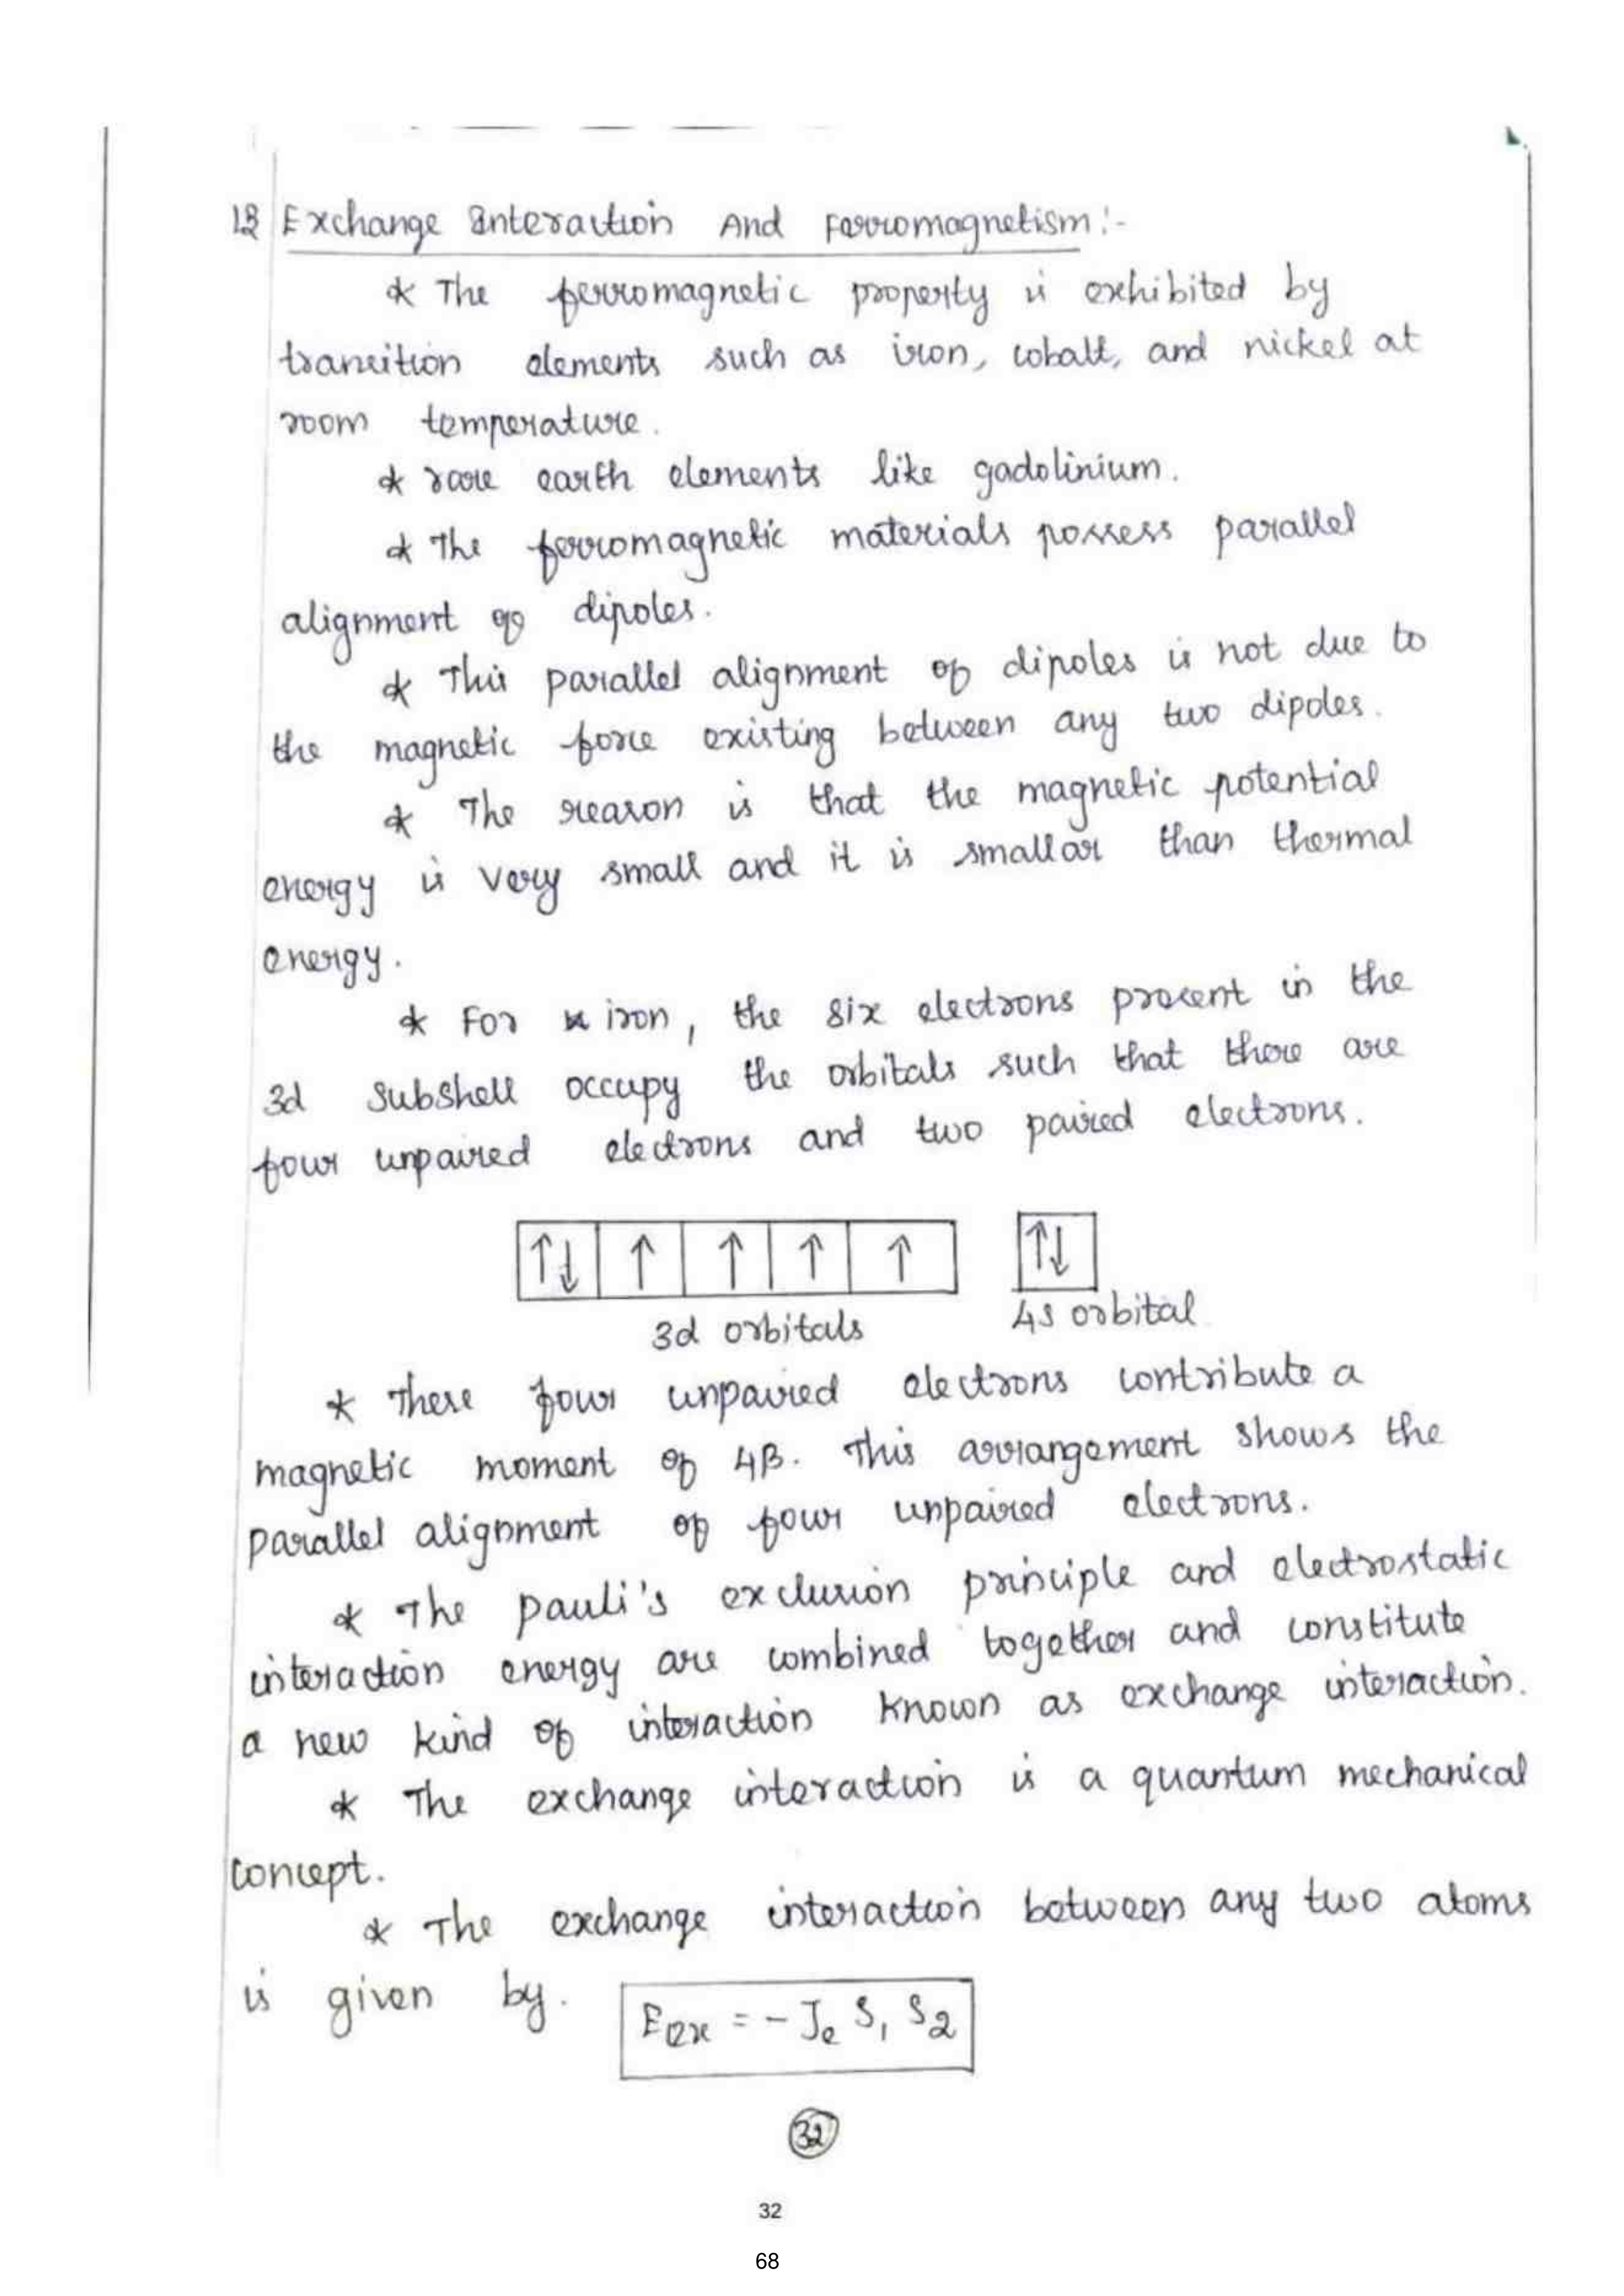 13 Exchange Interaction And Ferromagnetism:-
* The ferromagnetic property is exhibited by
transition elements such as iron, cobalt, and nickel at
room temperature.
* rare earth elements like gadolinium.
* The ferromagnetic materials possess parallel
alignment of dipoles.
* This parallel alignment of dipoles is not due to
the magnetic force existing between any two dipoles.
* The reason is that the magnetic potential
energy is very small and it is smallar than thermal
energy.
* For iron, the six electrons present in the
3d subshell occupy the orbitals such that there are
four unpaired electrons and two paired electrons.
↑↓ ↑ ↑ ↑ ↑ ↑↓
3d orbitals 4s orbital
* These four unpaired electrons contribute a
magnetic moment of 4β. This arrangement shows the
parallel alignment of four unpaired electrons.
* The pauli's exclusion principle and electrostatic
interaction energy are combined together and constitute
a new kind of interaction known as exchange interaction.
* The exchange interaction is a quantum mechanical
concept.
* The exchange interaction between any two atoms
is given by. Eex = - Je S1 S2
32
32
68